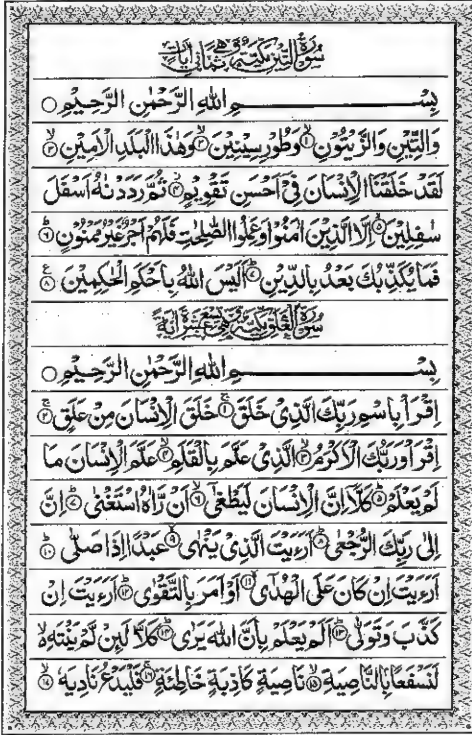 سُوْرَةُ التِّيْنِ مَكِّيَّةٌ وَّهِيَ ثَمَانِيْ اٰيَاتٍ
بِسْمِ اللهِ الرَّحْمٰنِ الرَّحِيْمِ ○
وَالتِّيْنِ وَالزَّيْتُوْنِ ۙ﴿۱﴾ وَطُوْرِ سِيْنِيْنَ ۙ﴿۲﴾ وَهٰذَا الْبَلَدِ الْاَمِيْنِ ۙ﴿۳﴾
لَقَدْ خَلَقْنَا الْاِنْسَانَ فِيْۤ اَحْسَنِ تَقْوِيْمٍ ۫﴿۴﴾ ثُمَّ رَدَدْنٰهُ اَسْفَلَ
سٰفِلِيْنَ ۙ﴿۵﴾ اِلَّا الَّذِيْنَ اٰمَنُوْا وَعَمِلُوا الصّٰلِحٰتِ فَلَهُمْ اَجْرٌ غَيْرُ مَمْنُوْنٍ ؕ﴿۶﴾
فَمَا يُكَذِّبُكَ بَعْدُ بِالدِّيْنِ ؕ﴿۷﴾ اَلَيْسَ اللهُ بِاَحْكَمِ الْحٰكِمِيْنَ ﴿۸﴾
سُوْرَةُ الْعَلَقِ مَكِّيَّةٌ وَّهِيَ تِسْعَ عَشَرَةَ اٰيَةً
بِسْمِ اللهِ الرَّحْمٰنِ الرَّحِيْمِ ○
اِقْرَاْ بِاسْمِ رَبِّكَ الَّذِيْ خَلَقَ ۚ﴿۱﴾ خَلَقَ الْاِنْسَانَ مِنْ عَلَقٍ ۚ﴿۲﴾
اِقْرَاْ وَرَبُّكَ الْاَكْرَمُ ۙ﴿۳﴾ الَّذِيْ عَلَّمَ بِالْقَلَمِ ۙ﴿۴﴾ عَلَّمَ الْاِنْسَانَ مَا
لَمْ يَعْلَمْ ؕ﴿۵﴾ كَلَّاۤ اِنَّ الْاِنْسَانَ لَيَطْغٰۤى ۙ﴿۶﴾ اَنْ رَّاٰهُ اسْتَغْنٰى ؕ﴿۷﴾ اِنَّ
اِلٰى رَبِّكَ الرُّجْعٰى ؕ﴿۸﴾ اَرَءَيْتَ الَّذِيْ يَنْهٰى ۙ﴿۹﴾ عَبْدًا اِذَا صَلّٰى ؕ﴿۱۰﴾
اَرَءَيْتَ اِنْ كَانَ عَلَى الْهُدٰۤى ۙ﴿۱۱﴾ اَوْ اَمَرَ بِالتَّقْوٰى ؕ﴿۱۲﴾ اَرَءَيْتَ اِنْ
كَذَّبَ وَتَوَلّٰى ؕ﴿۱۳﴾ اَلَمْ يَعْلَمْ بِاَنَّ اللهَ يَرٰى ؕ﴿۱۴﴾ كَلَّا لَىِٕنْ لَّمْ يَنْتَهِ ۙ
لَنَسْفَعًۢا بِالنَّاصِيَةِ ۙ﴿۱۵﴾ نَاصِيَةٍ كَاذِبَةٍ خَاطِئَةٍ ۚ﴿۱۶﴾ فَلْيَدْعُ نَادِيَهٗ ۙ﴿۱۷﴾